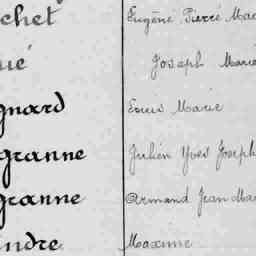 chet Eugène Pierre Mar
ué Joseph Marie
gnard Louis Marie
granne Julien Yves Joseph
granne Armand Jean Mar
endre Maxime